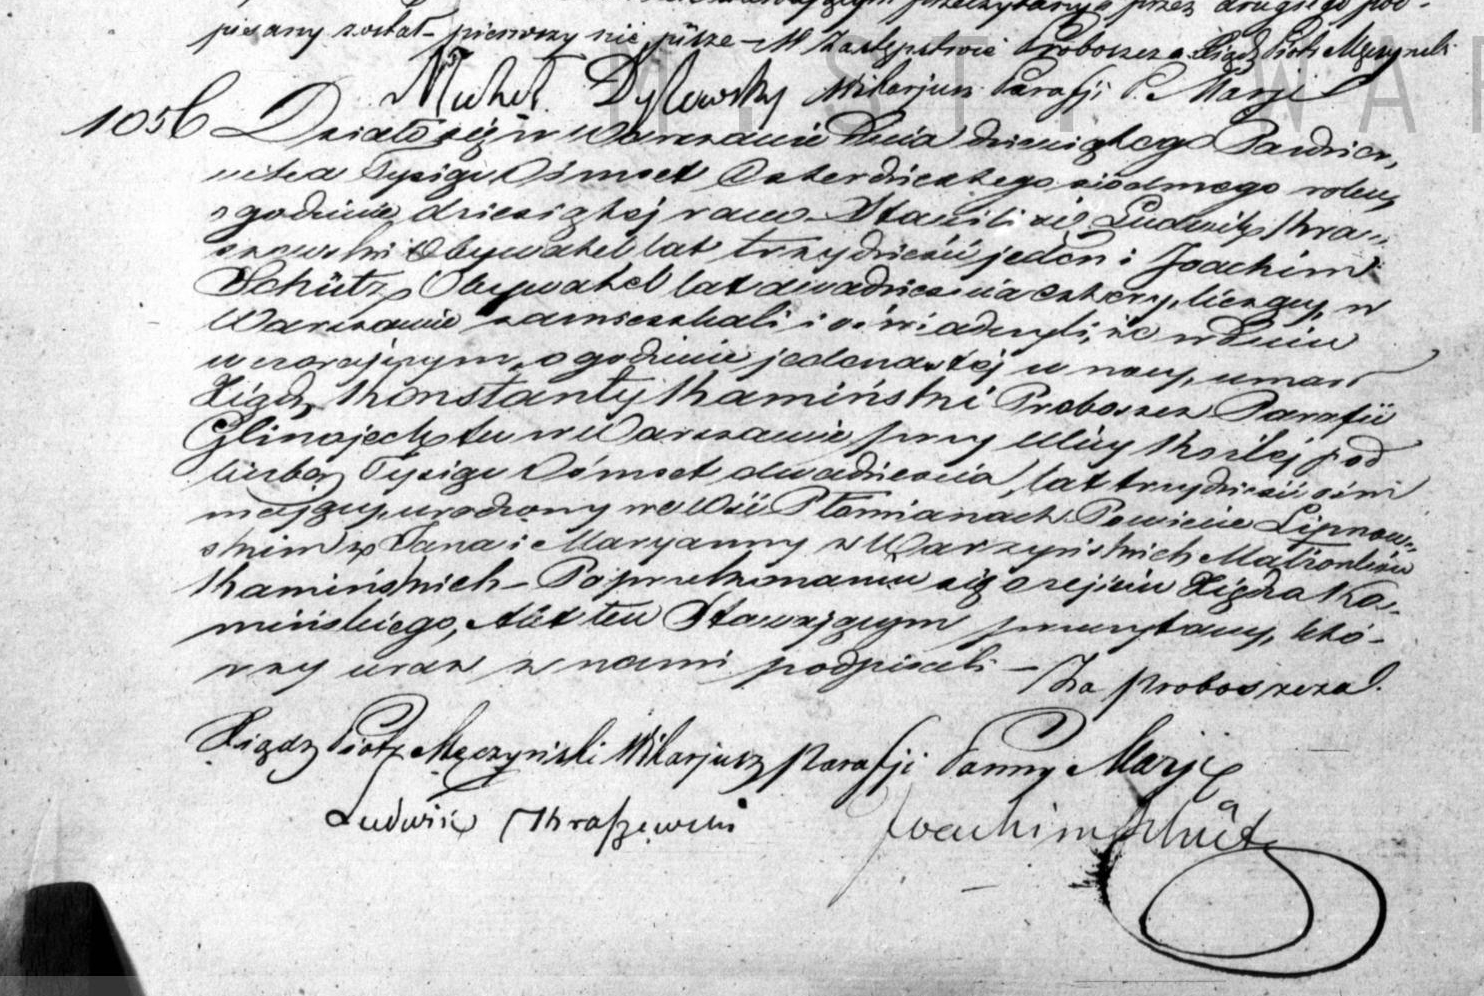 pisany został pierwszy nie pisze – W Zastępstwie Proboszcza Xiądz Piotr Męczynski
Michał Dylewsky Wikarjusz Parafji P. Marji
1056 Działo się w Warszawie Dnia dziewiątego Paździer,,
nika Tysiąc Ośmset Czterdziestego siódmego roku,
o godzinie dziesiątej rano – Stawili się Ludwik Kra,,
szewski Obywatel lat trzydzieści jeden i Joachim
Schütz Obywatel lat dwadzieścia cztery liczący, w
Warszawie zamieszkali i oświadczyli, że w dniu
wczorajszym, o godzinie jedenastej w nocy, umarł
Xiądz Konstanty Kamiński Proboszcz Parafii
Glinojeck tu w Warszawie przy Ulicy Koziej pod
liczbą Tysiąc Ośmset dwadzieścia, lat trzydzieści ośm
mający, urodzony we Wsi Płomianach Powiecie Lipnow,,
skim z Jana i Maryanny z Warzyńskich Małżonków
Kamińskich – Po przekonaniu się o zejściu Xiędza Ka,,
mińskiego, Akt ten Stawającym przeczytany, któ-
rzy wraz z nami podpisali – Za Proboszcza
Xiądz Piotr Męczyński Wikarjusz Parafji Panny Marji
Ludwik Kraszewski Joachim Schütz